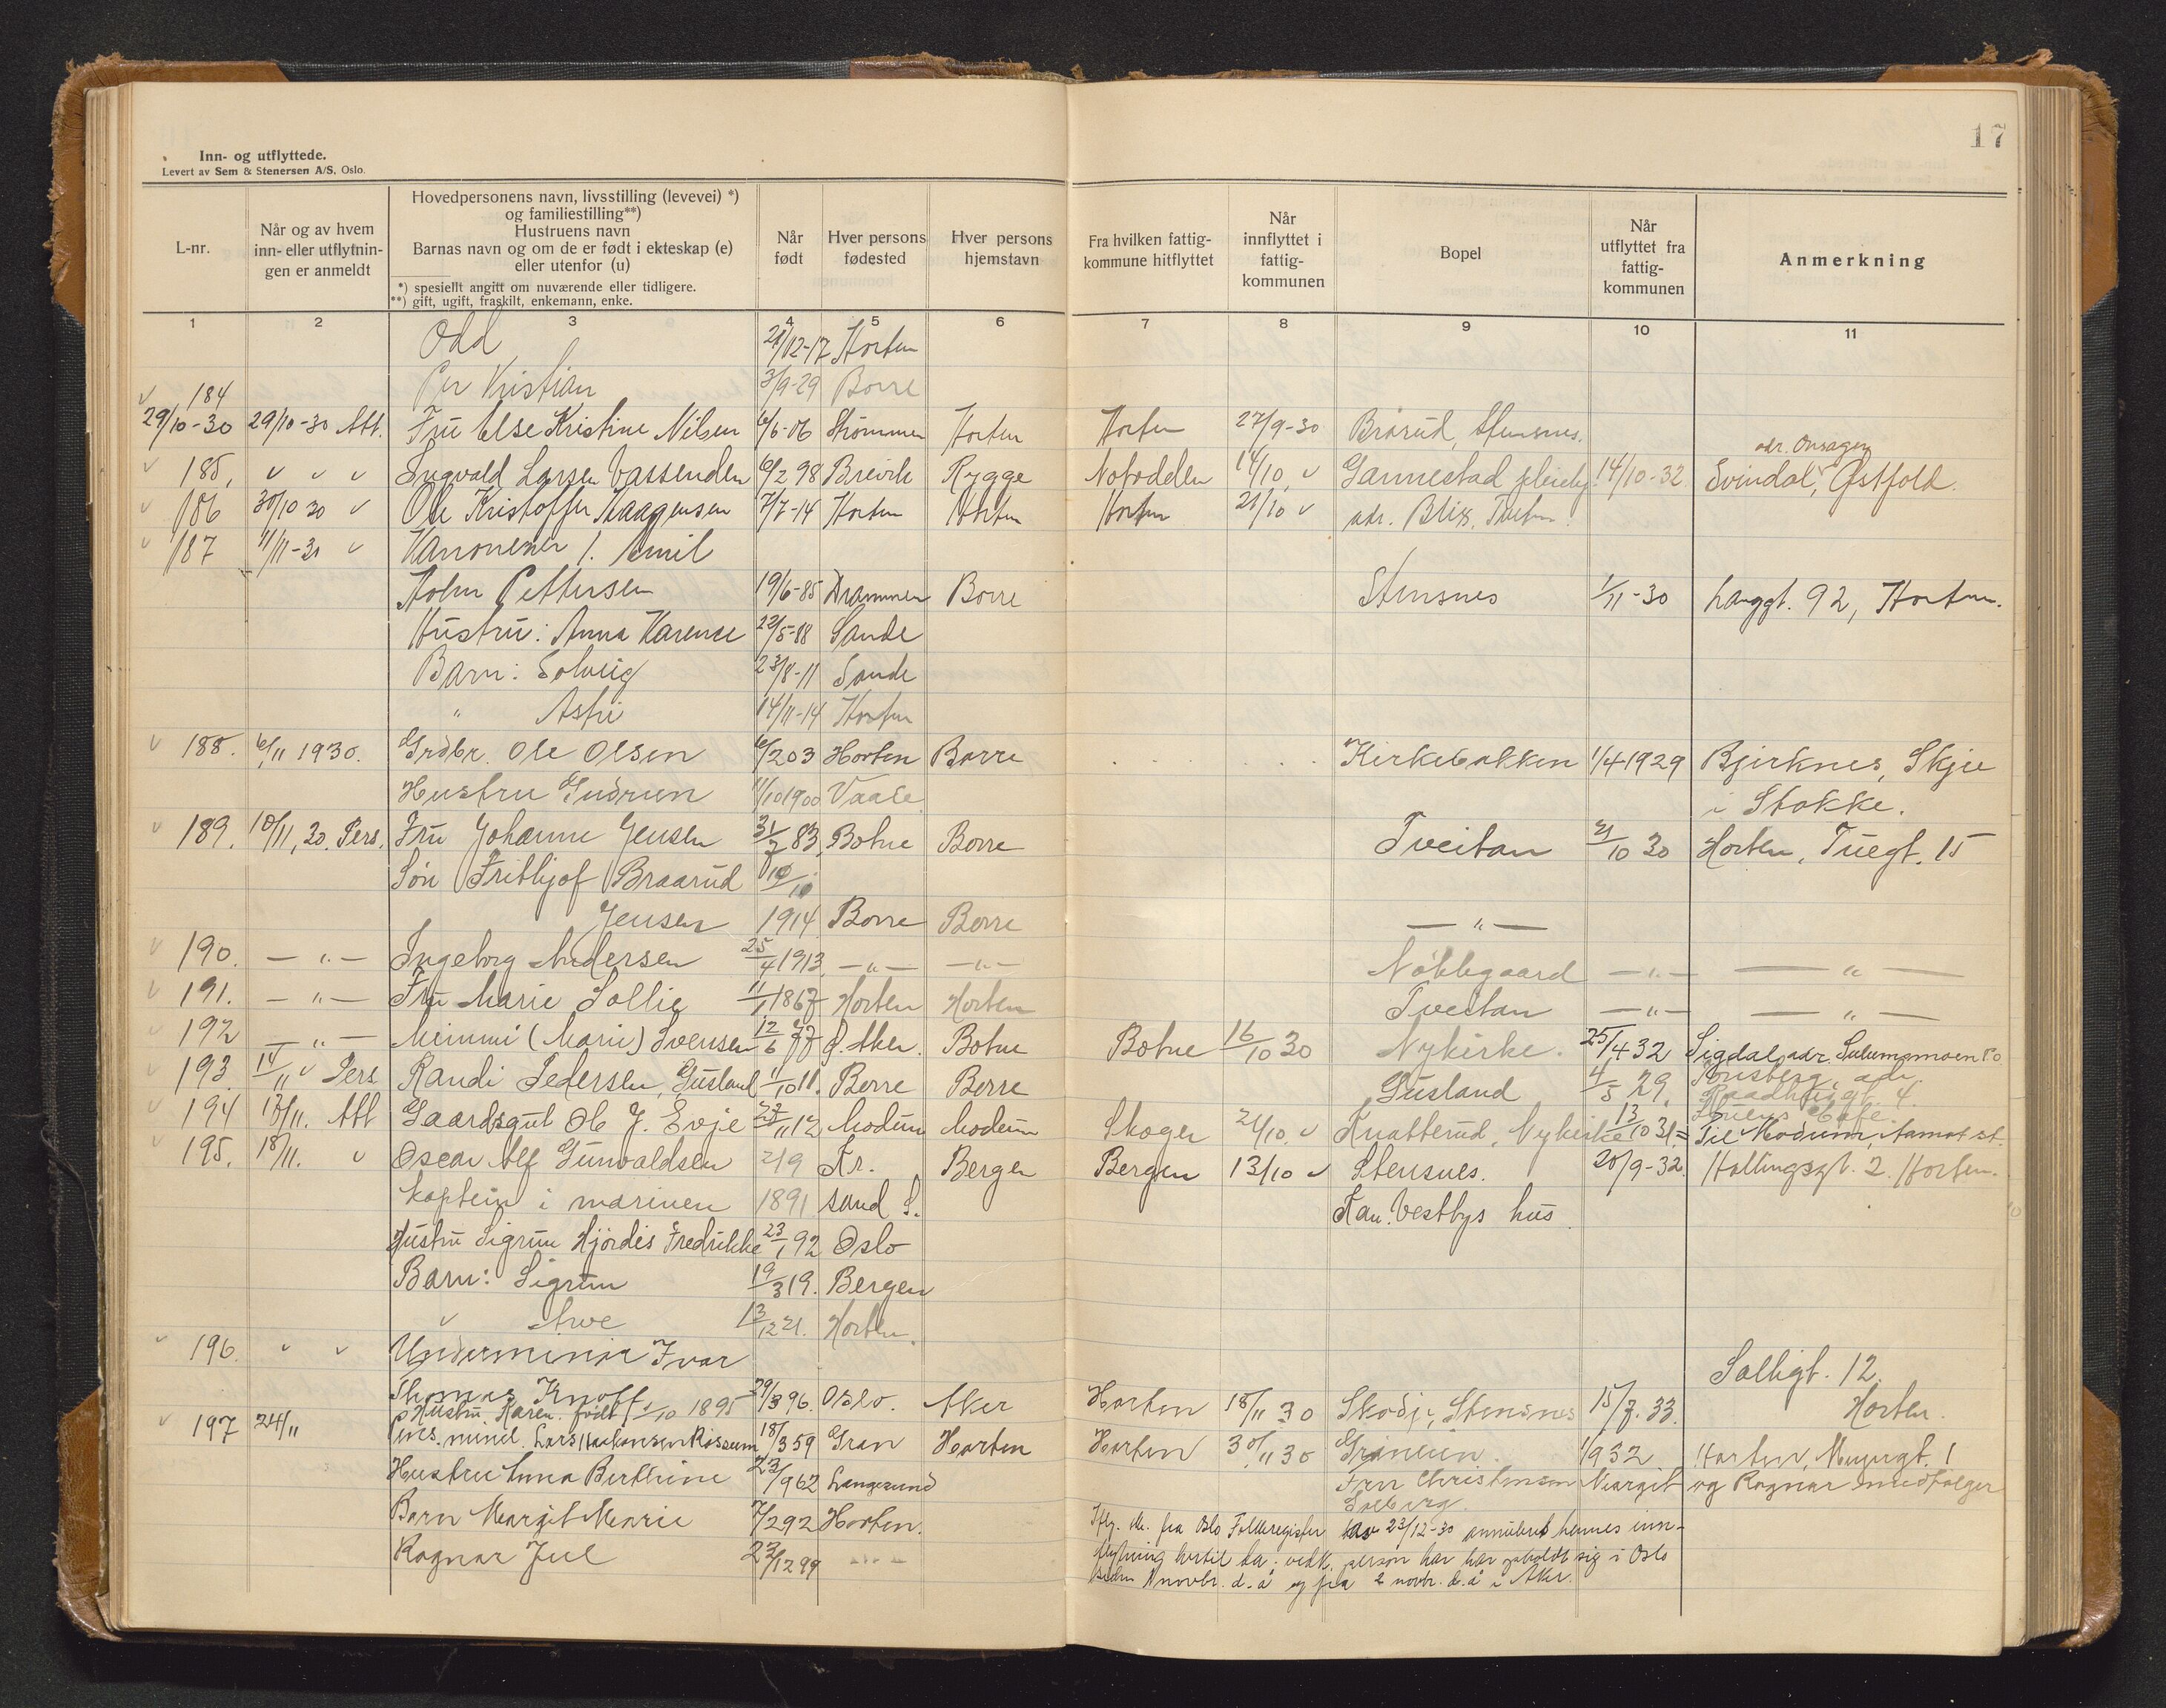 17
Inn- og utflyttede.
Levert av Sem & Stenersen A/S, Oslo.
L-nr.
Når og av hvem inn- eller utflytnin-gen er anmeldt
Hovedpersonens navn, livsstilling (levevei) *)
og familiestilling**)
Hustruens navn
Barnas navn og om de er født i ekteskap (e)
eller utenfor (u)
*) spesielt angitt om nuværende eller tidligere.
**) gift, ugift, fraskilt, enkemann, enke.
Når født
Hver persons fødested
Hver persons hjemstavn
Fra hvilken fattig-kommune hitflyttet
Når innflyttet i fattig-kommunen
Bopel
Når utflyttet fra fattig-kommunen
Anmerkning
1 2 3 4 5 6 7 8 9 10 11
Odd 21/12-17 Horten
Per Kristian 3/9-29 Borre
184
29/10-30 29/10-30 Att. Fru Else Kristine Nilsen 6/6-06 Strømmen Horten Horten 27/9-30 Brårud, Stensnes.
adr. Onsagen
185, " " " Ingvald Larsen Vassenden 6/2 98 Breivik Rygge Notodden 14/10 " Gannestad pleiehj. 14/10-32 Svindal, Østfold.
186 30/10 30 " Ole Kristoffer Haagensen 7/7-14 Horten Horten Horten 21/10 " adr. Blix,
187 11/11-30 " Kanonener 1. Emil
Holm Pettersen 19/6-85 Drammen Borre Stensnes 1/11-30 Langgt. 92, Horten.
Hustru: Anna Karense 22/5-88 Sande
Barn: Solveig 23/8-11 Sande
" Astri 14/11-14 Horten
188. 6/11 1930. Grdbr. Ole Olsen 6/2 03 Horten Borre Kirkebakken 1/4 1929 Bjerknes, Skjee
Hustru Gudrun 11/10 1900 Vaale i Stokke.
189. 10/11, 30. Pers. Fru Johanne Jensen 31/7 83, Botne Borre Tveitan 21/10 30 Horten, Tuegt. 15
Søn Frithjof Braarud 10/10
Jensen 1914 Borre Borre — " —
190. — " — Ingeborg Andersen 25/4 1913, — " — — " — Nøklegaard — " — — " —
191. — " — Fru Marie Sollie 11/1 1867 Horten Horten Tveitan — " — — " —
192 — " — Mimmi (Marie) Svensen 12/6 77 Ø. Aker. Botne Botne 16/10 30 Nykirke. 25/4 32 Sigdal, adr.
193. 14/11 " Pers Randi Pedersen, Gusland 1/10 11. Borre Borre Gusland 4/5 29. Tønsberg, adr.
Raadhusgt. 4.
194 13/11. Att Gaardsgut Ole J. Evje 27/11 12 Modum Modum Skoger 24/10. " Knatterud, Nykirke 13/10 31. = Til Modum, Aamot st.
195. 18/11. " Oscar Alf Gunvaldsen 2/9 Kr. Bergen Bergen 13/10 " Stensnes. 20/9-32. Hollingsgt. 2. Horten.
kaptein i marinen 1891 sand S. Kan. Vestbys hus.
Hustru Sigrun Hjördis Fredrikke 23/1 92 Oslo
Barn: Sigrun 19/3 19. Bergen
" Arve 13/12 21. Horten.
196. " " Underminør Ivar Solligt. 12.
Thomas Knoff 29/3 96. Oslo. Aker Horten 18/11 30 Skodje, Stensnes 15/7. 33. Horten.
Hustru. Karen. født 1/10 1895
197 24/11 Lars Haakonsen Rossum 18/3 59 Gran Horten Horten 30/11 30 1932 Horten, 1
Hustru Anna Berthine 23/9 62 Langesund Fru Christensen Margit og Ragnar medfølger
Solberg.
Barn Margit Marie 7/2 92 Horten.
Ragnar Jul 23/12 99 " "
Iflg. fra Oslo Folkeregister av 23/12-30 annulert hennes inn-
flytning hertil da vedk. person har har opholdt sig i Oslo
siden 1 novbr. d. å og fra 2 novbr. d. å i Aker.